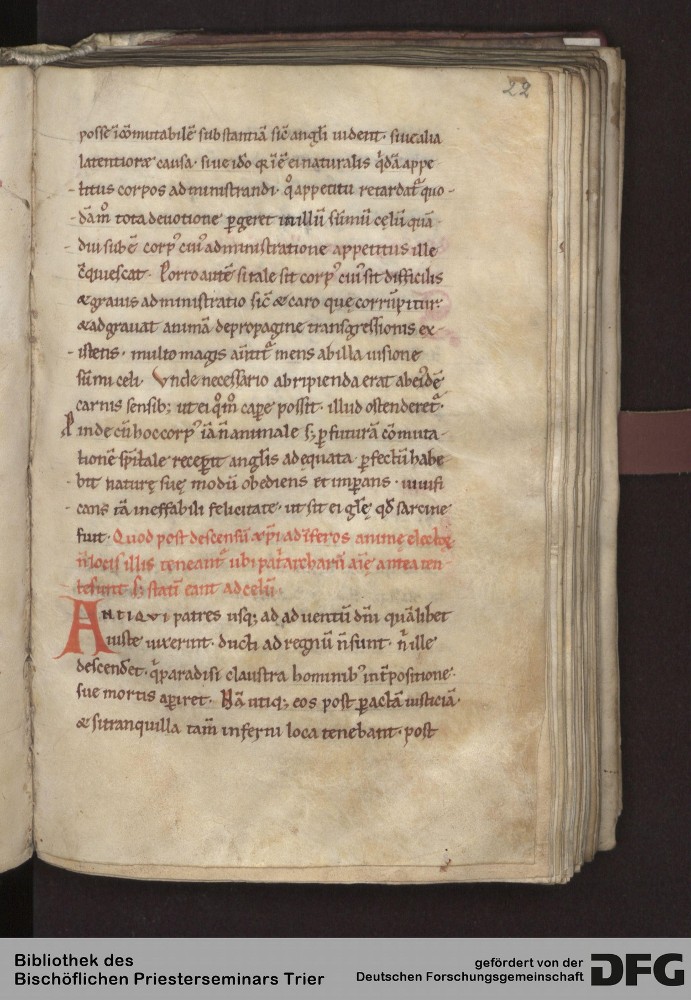 22
posse i͞cōmutabilē substantiā sic̄ angl̄i uident. siue alia
latentiore causa. siue ido͛ qr i͞ē ei naturalis q̇dā appe
titus corpos administrandi. qͦ appetitu retardat᷑ quo
dāmͦ tota deuotione ꝑgeret in illū sūmū cęlū quā
diu subē corpꝰ cuiꝰ administratione appetitus ille
c̄quiescat. Porro autē si tale sit corpꝰ cuiꝰ sit difficilis
& grauis administratio sic̄ & caro quę corrūpitur
& adgrauat animā de propagine transgressionis ex
istens. multo magis au͞tit᷑ mens ab illa uisione
sūmi celi. Vnde necessario abripienda erat ab ei͞dē
carnis sensibꝫ ut ei qͦmͦ cape possit. illud ostenderet᷑.
Pinde cū hoc corpꝰ iā n̄ animale sꝫ ꝑ futurā cōmuta
tionē sp̄itale receꝑit angl̄is adequata. ꝑfectū habe
bit naturę suę modū obediens et imꝑans. uiuifi
cans tā ineffabili felicitate. ut sit ei gl̄ę qd̄ sarcine
fuit. Quod post descensū xp̄i ad i͞feros animę electoꝝ
n̄ locis illis teneant᷑ ubi pat͛archarū ai͞ę antea ten
te sunt sꝫ statī eant ad celū.
ANTIQVI patres usqꝫ ad aduentū dn̄i quālibet
iuste uixerint. ducti ad regnū n̄ sunt. n͛ ille
descend͛et. q̇ paradisi claustra hominibꝰ int͛positione
sue mortis aꝑiret. Nā utiqꝫ eos post ꝑactā iusticiā.
& si tranquilla tam̄ inferni loca tenebant. post
Bibliothek des
Bischöflichen Priesterseminars Trier
gefördert von der
Deutschen Forschungsgemeinschaft
DFG